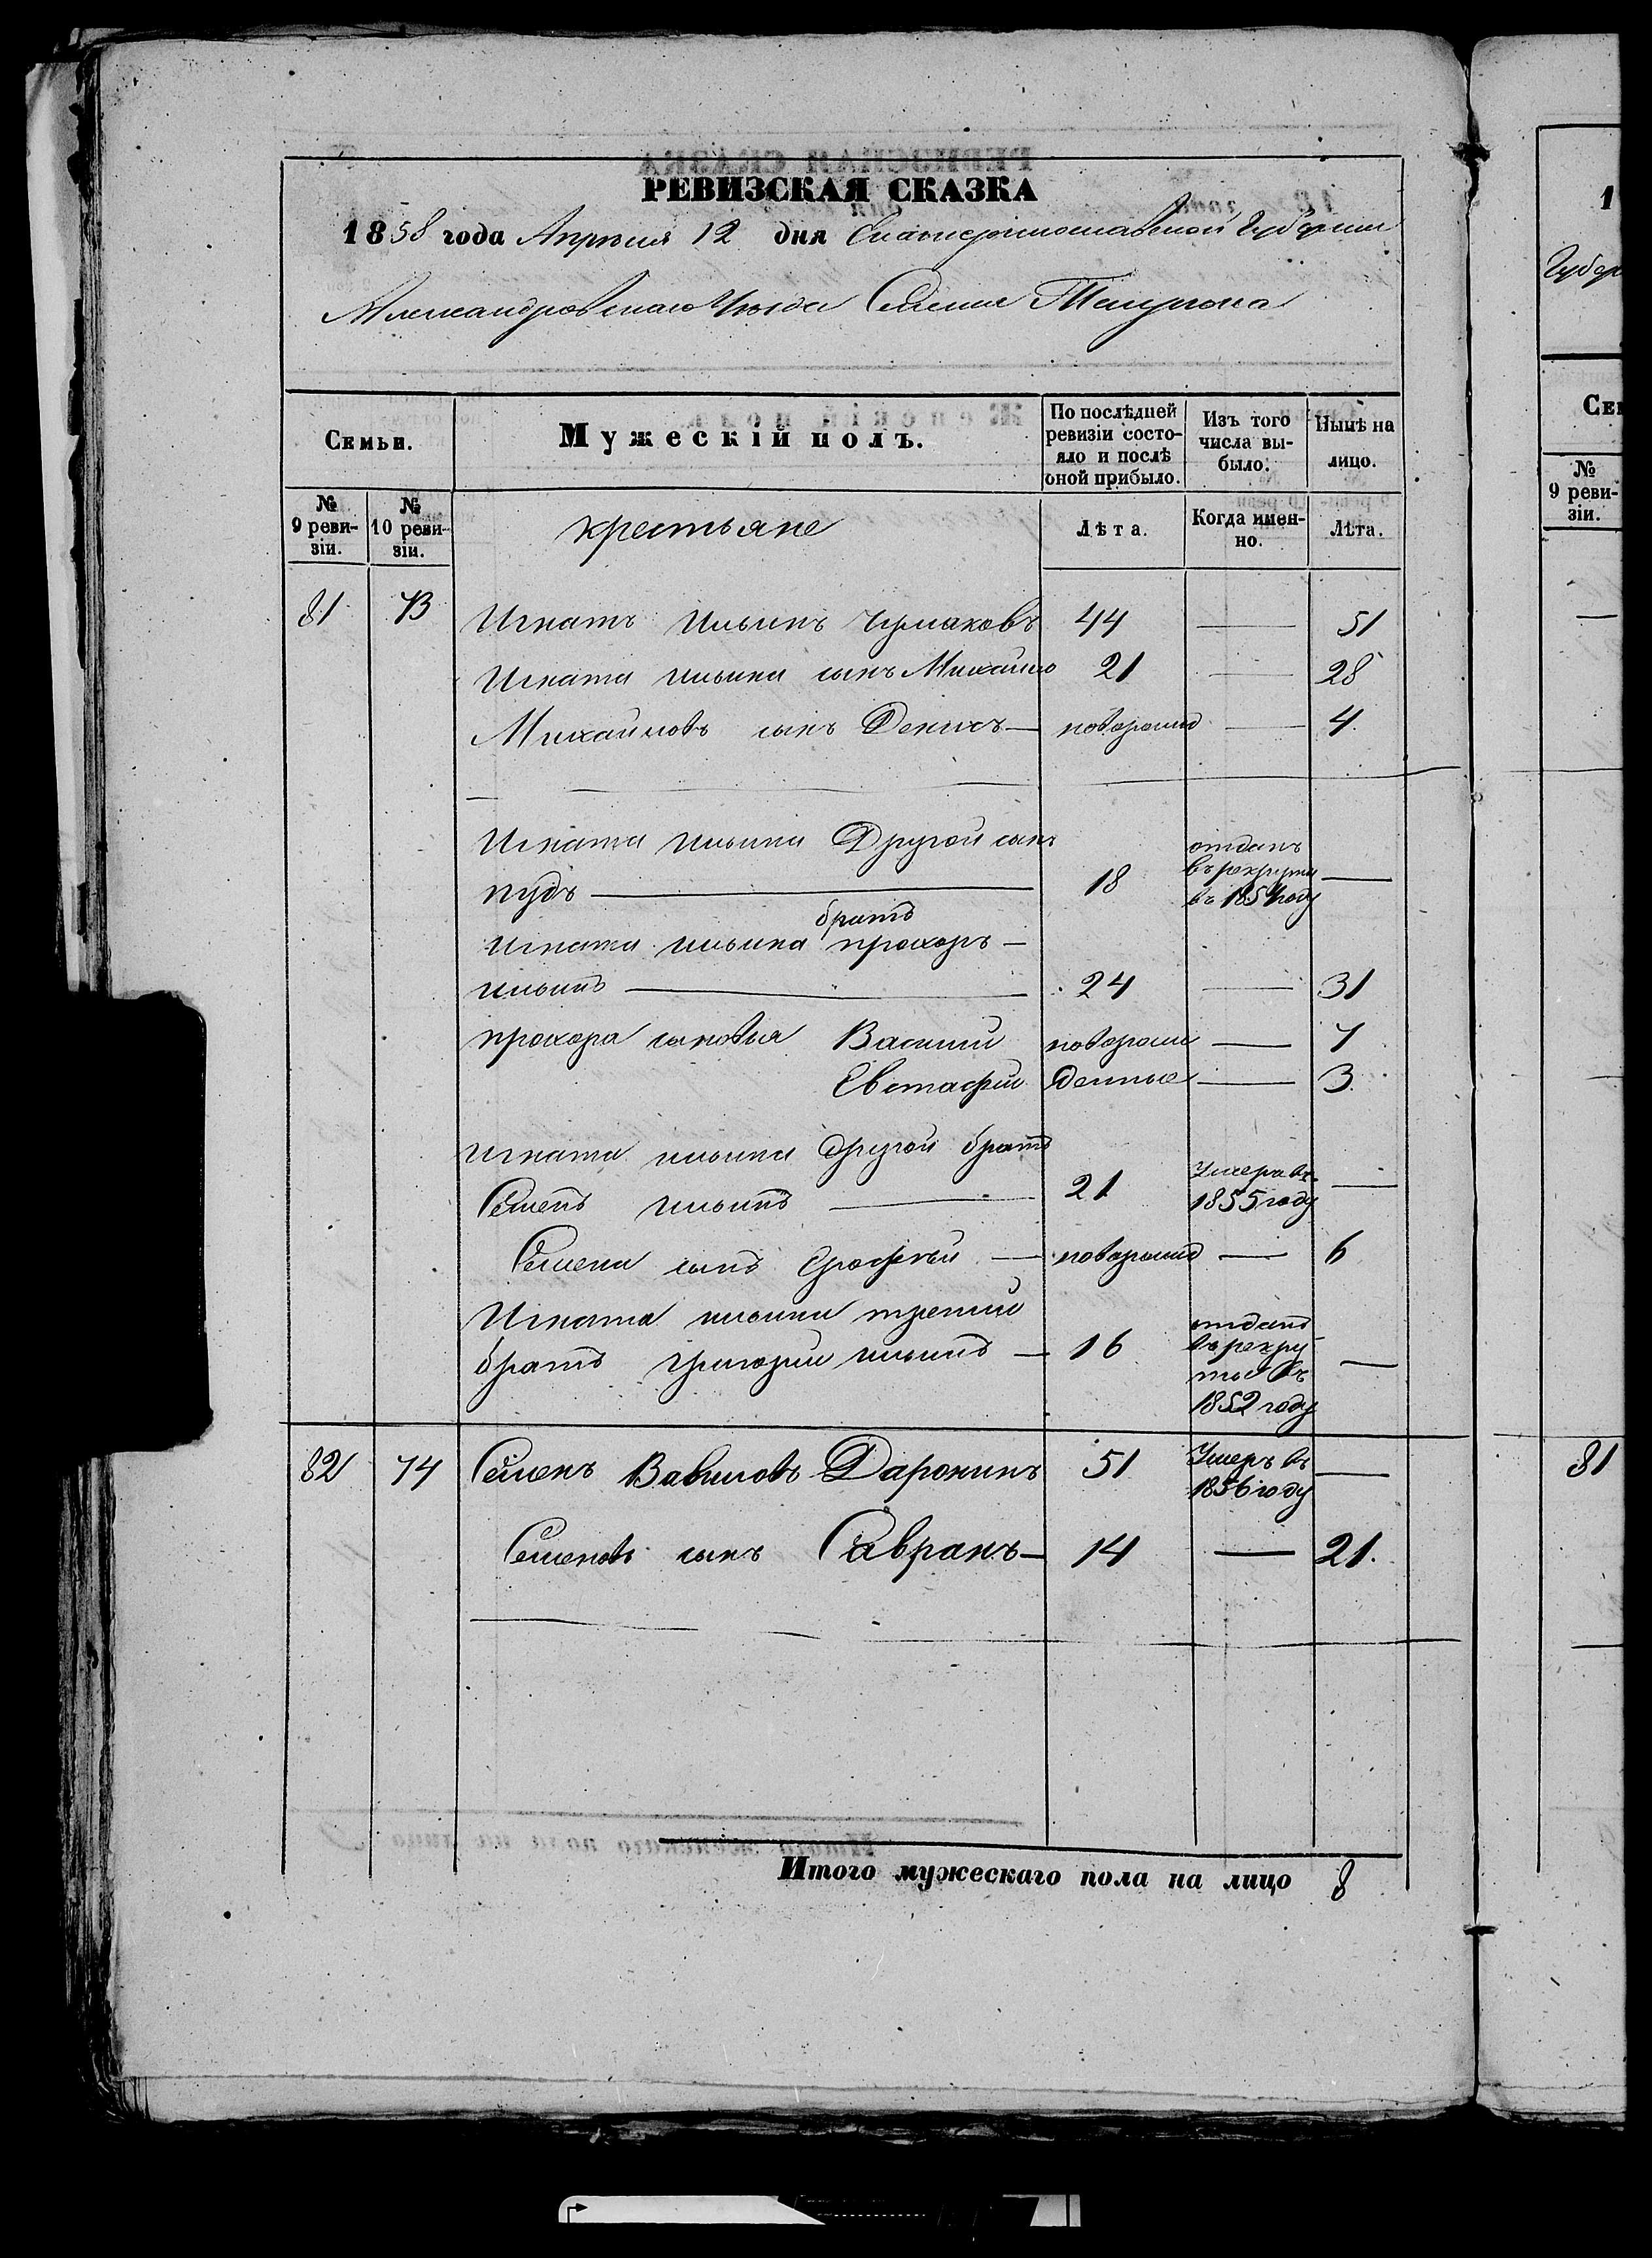 РЕВИЗСКАЯ СКАЗКА
1858 года Апреля 12 дня Екатеринославской Губернии
Александровскаго Уезда Селения
Семьи.
Мужескій полъ.
По послѣдней ревизіи состояло и послѣ оной прибыло.
Изъ того числа выбыло.
Нынѣ на лицо.
№ 9 ревизіи.
№ 10 ревизіи.
крестьяне
Лѣта.
Когда именно.
Лѣта.
81 73 Игнатъ Ильинъ Чумаковъ 44 — 51
Игната Ильина сынъ Михайло 21 — 28
Михайловъ сынъ Денисъ — новорожд — 4
Игната Ильина Другой сынъ
отданъ
нудъ — 18 въ рекруты —
въ 1854 году
братъ
Игната Ильина прохоръ —
ильинъ — 24 — 31
прохора сыновья Василий новорож — 7
Евстафий денные — 3
Игната ильина другой братъ
Семенъ ильинъ — 21 Умеръ въ 1855 году —
Семена сынъ Ерофѣй — новорожд — 6
Игната ильина третий
братъ григорий ильинъ — 16 отданъ въ рекруты въ 1852 году —
82 74 Семенъ Вавиловъ Даронинъ 51 Умеръ въ 1856 году —
Семеновъ сынъ Савранъ — 14 — 21.
Итого мужескаго пола на лицо 8
1
Губер
Сем
№
9 реви-
зіи.
81